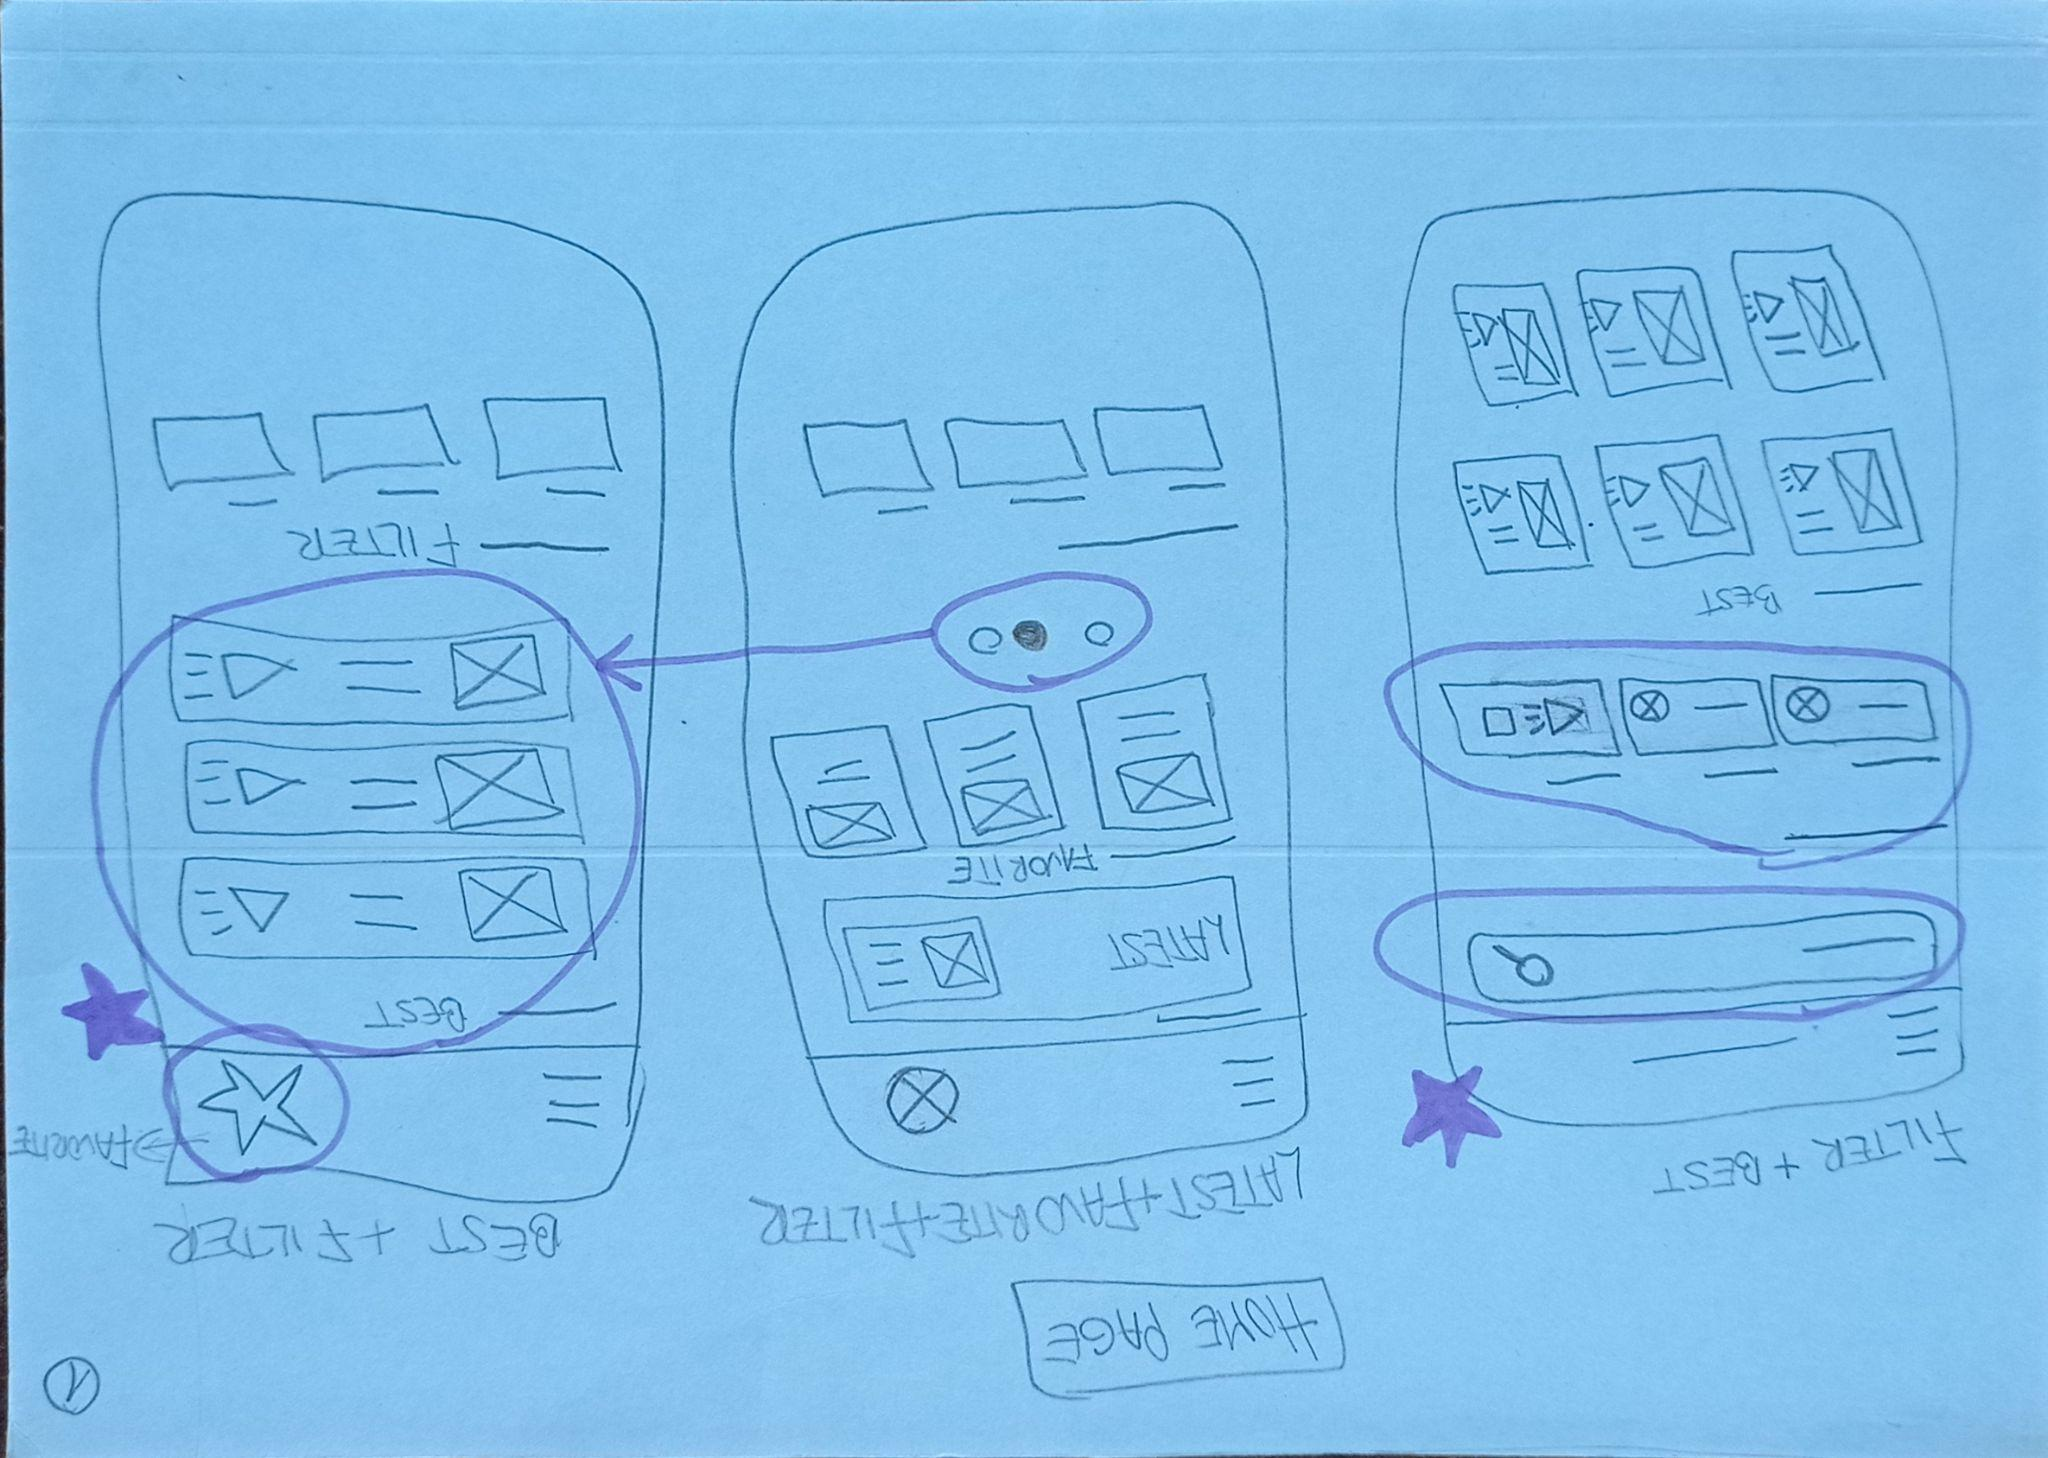 1
HOME PAGE
FILTER + BEST
BEST
LATEST+FAVORITE+FILTER
LATEST
FAVORITE
BEST + FILTER
→FAVORITE
BEST
FILTER